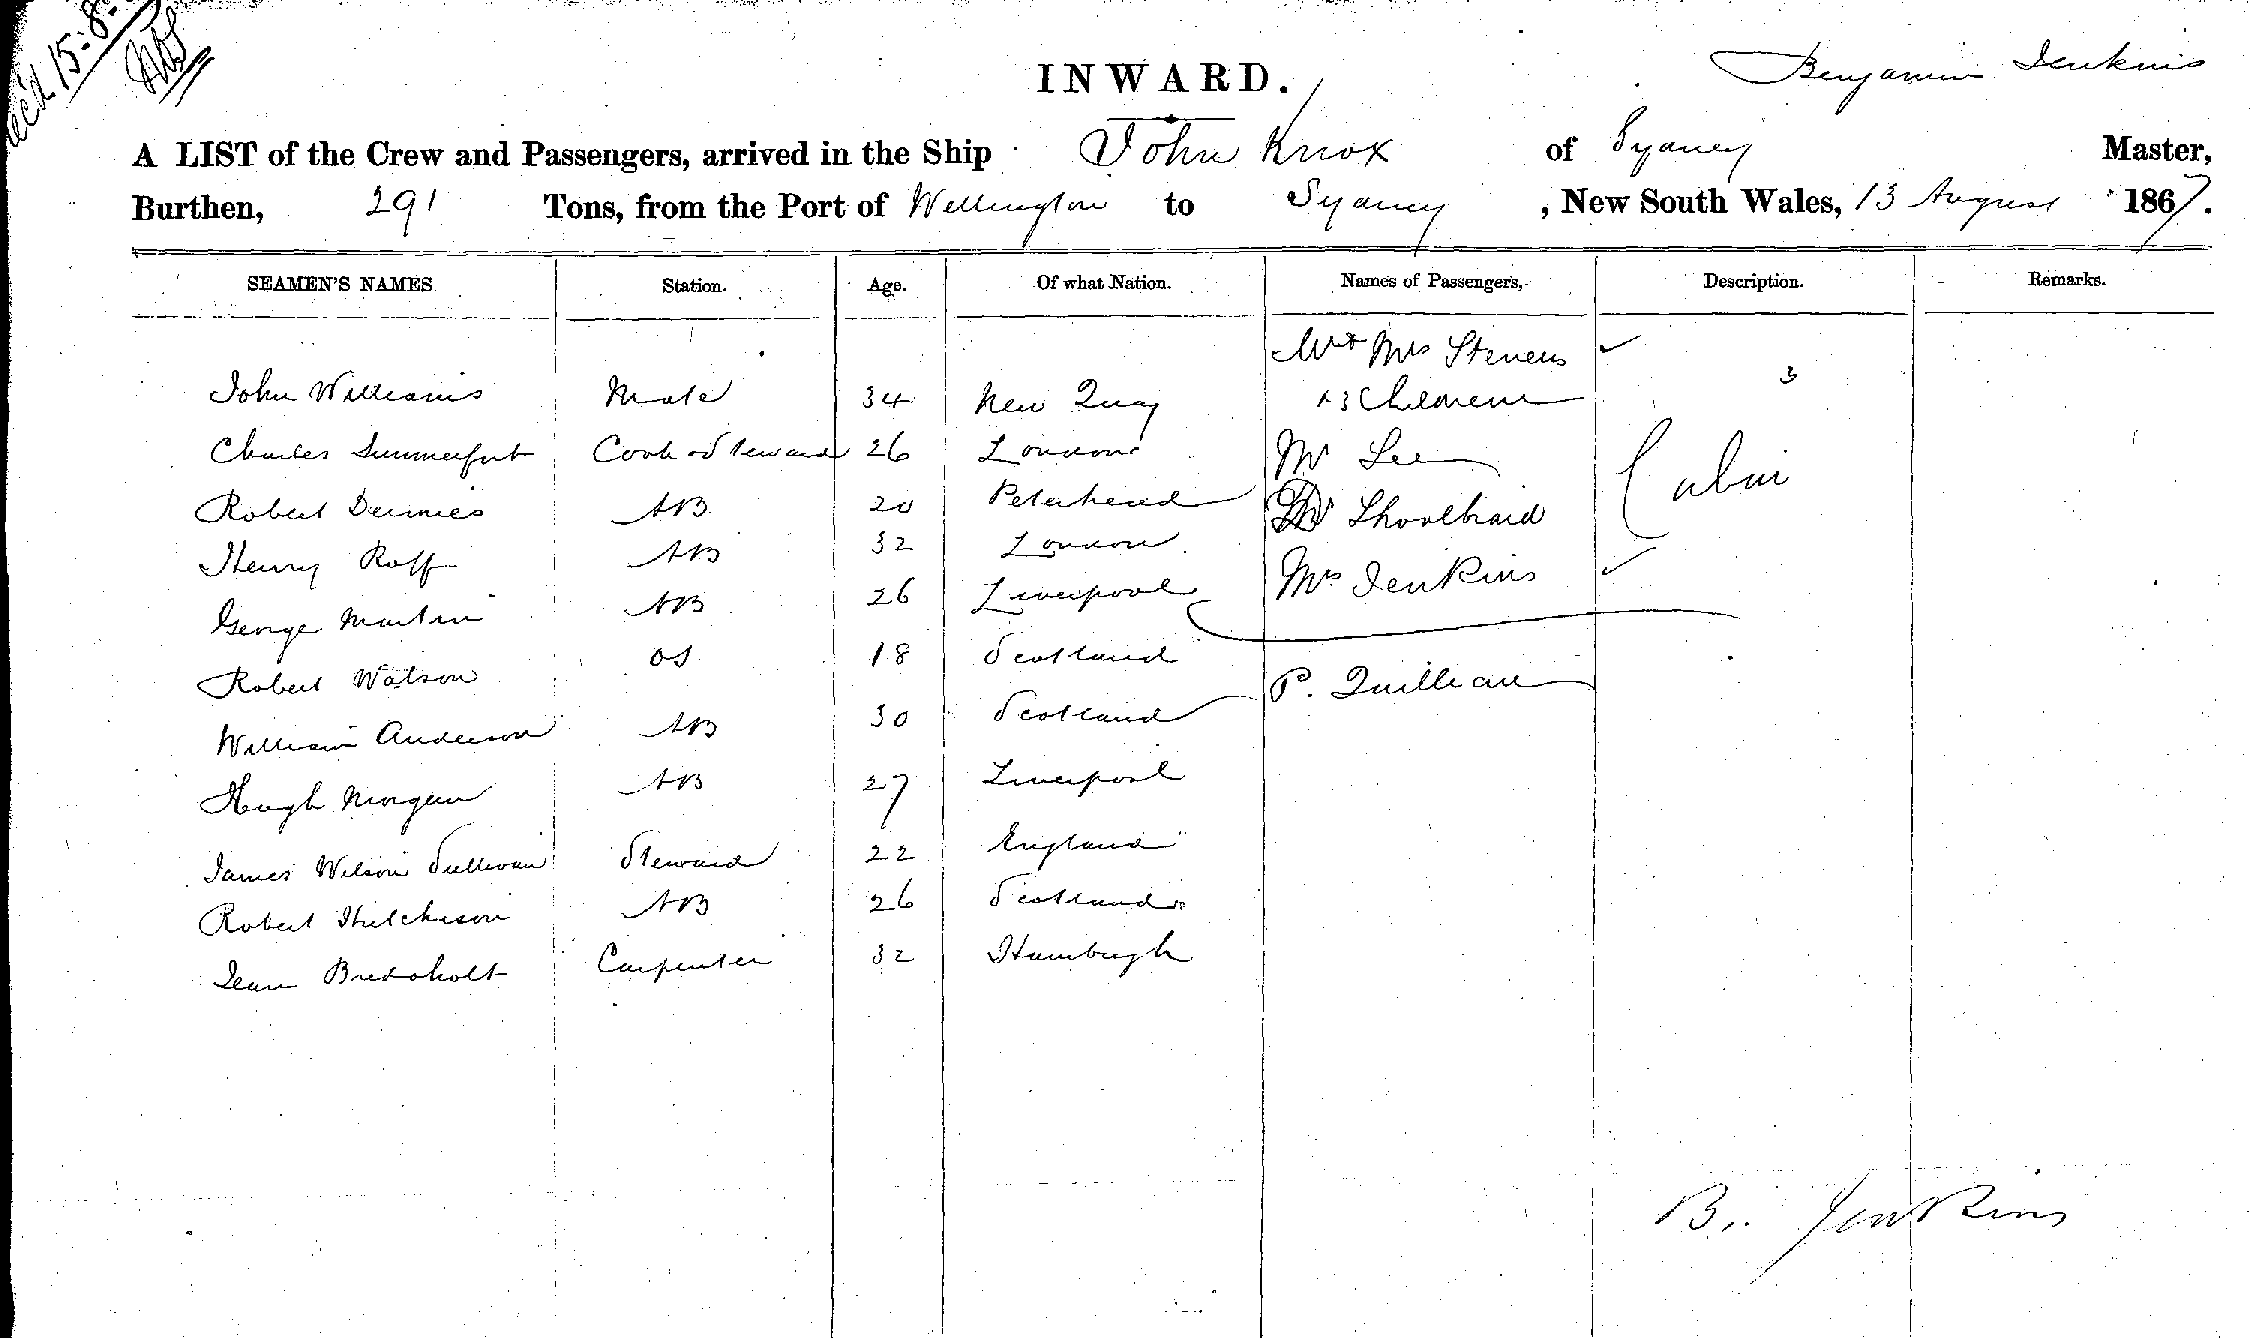 INWARD.
Benjamin Jenkins
A LIST of the Crew and Passengers, arrived in the Ship John Knox of Sydney Master,
Burthen, 291 Tons, from the Port of Wellington to Sydney, New South Wales, 13 August 1867.
SEAMEN'S NAMES Station. Age. Of what Nation. Names of Passengers, Description. Remarks.
Mr & Mrs Stevens
John Williams Mate 34 New Quay & 3 Children 3
Charles Cook & Steward 26 London Mr Lee Cabin
Robert AB 20 Peterhead Dr Shoolbraid
Henry Roff AB 32 London
George Martin AB 26 Liverpool Mrs Jenkins
Robert Watson OS 18 Scotland
P. Quillean
William Anderson AB 30 Scotland
Hugh Morgan AB 27 Liverpool
James Wilson Sullivan Steward 22 England
Robert Hutchison AB 26 Scotland
Jean Carpenter 32 Hamburgh
B. Jenkins